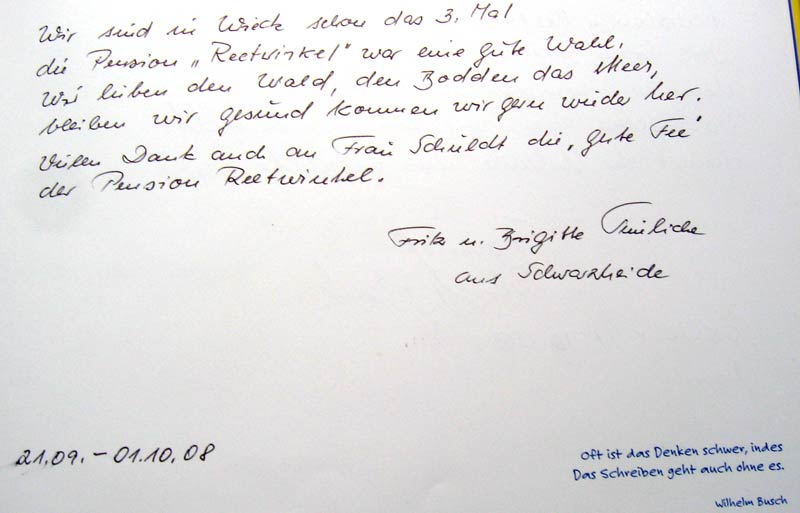 Wir sind in Wieck schon das 3. Mal
die Pension „Reetwinkel" war eine gute Wahl,
Wir lieben den Wald, den Bodden das Meer,
bleiben wir gesund kommen wir gern wieder her.
Vielen Dank auch an Frau Schuldt die „gute Fee"
der Pension Reetwinkel.
Fritz u. Brigitte
aus Schwarzheide
21.09. – 01.10.08
Oft ist das Denken schwer, indes
Das Schreiben geht auch ohne es.
Wilhelm Busch